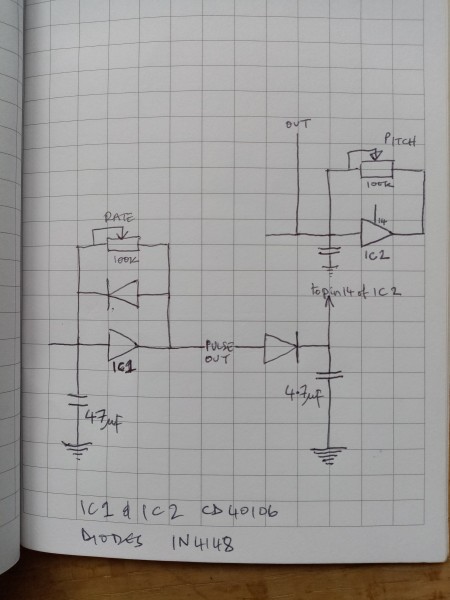 OUT
PITCH
100K
14
IC2
RATE
100K
to pin 14 of IC2
IC1
PULSE
OUT
47µF
4.7µF
IC1 & IC2 CD40106
DIODES IN4148